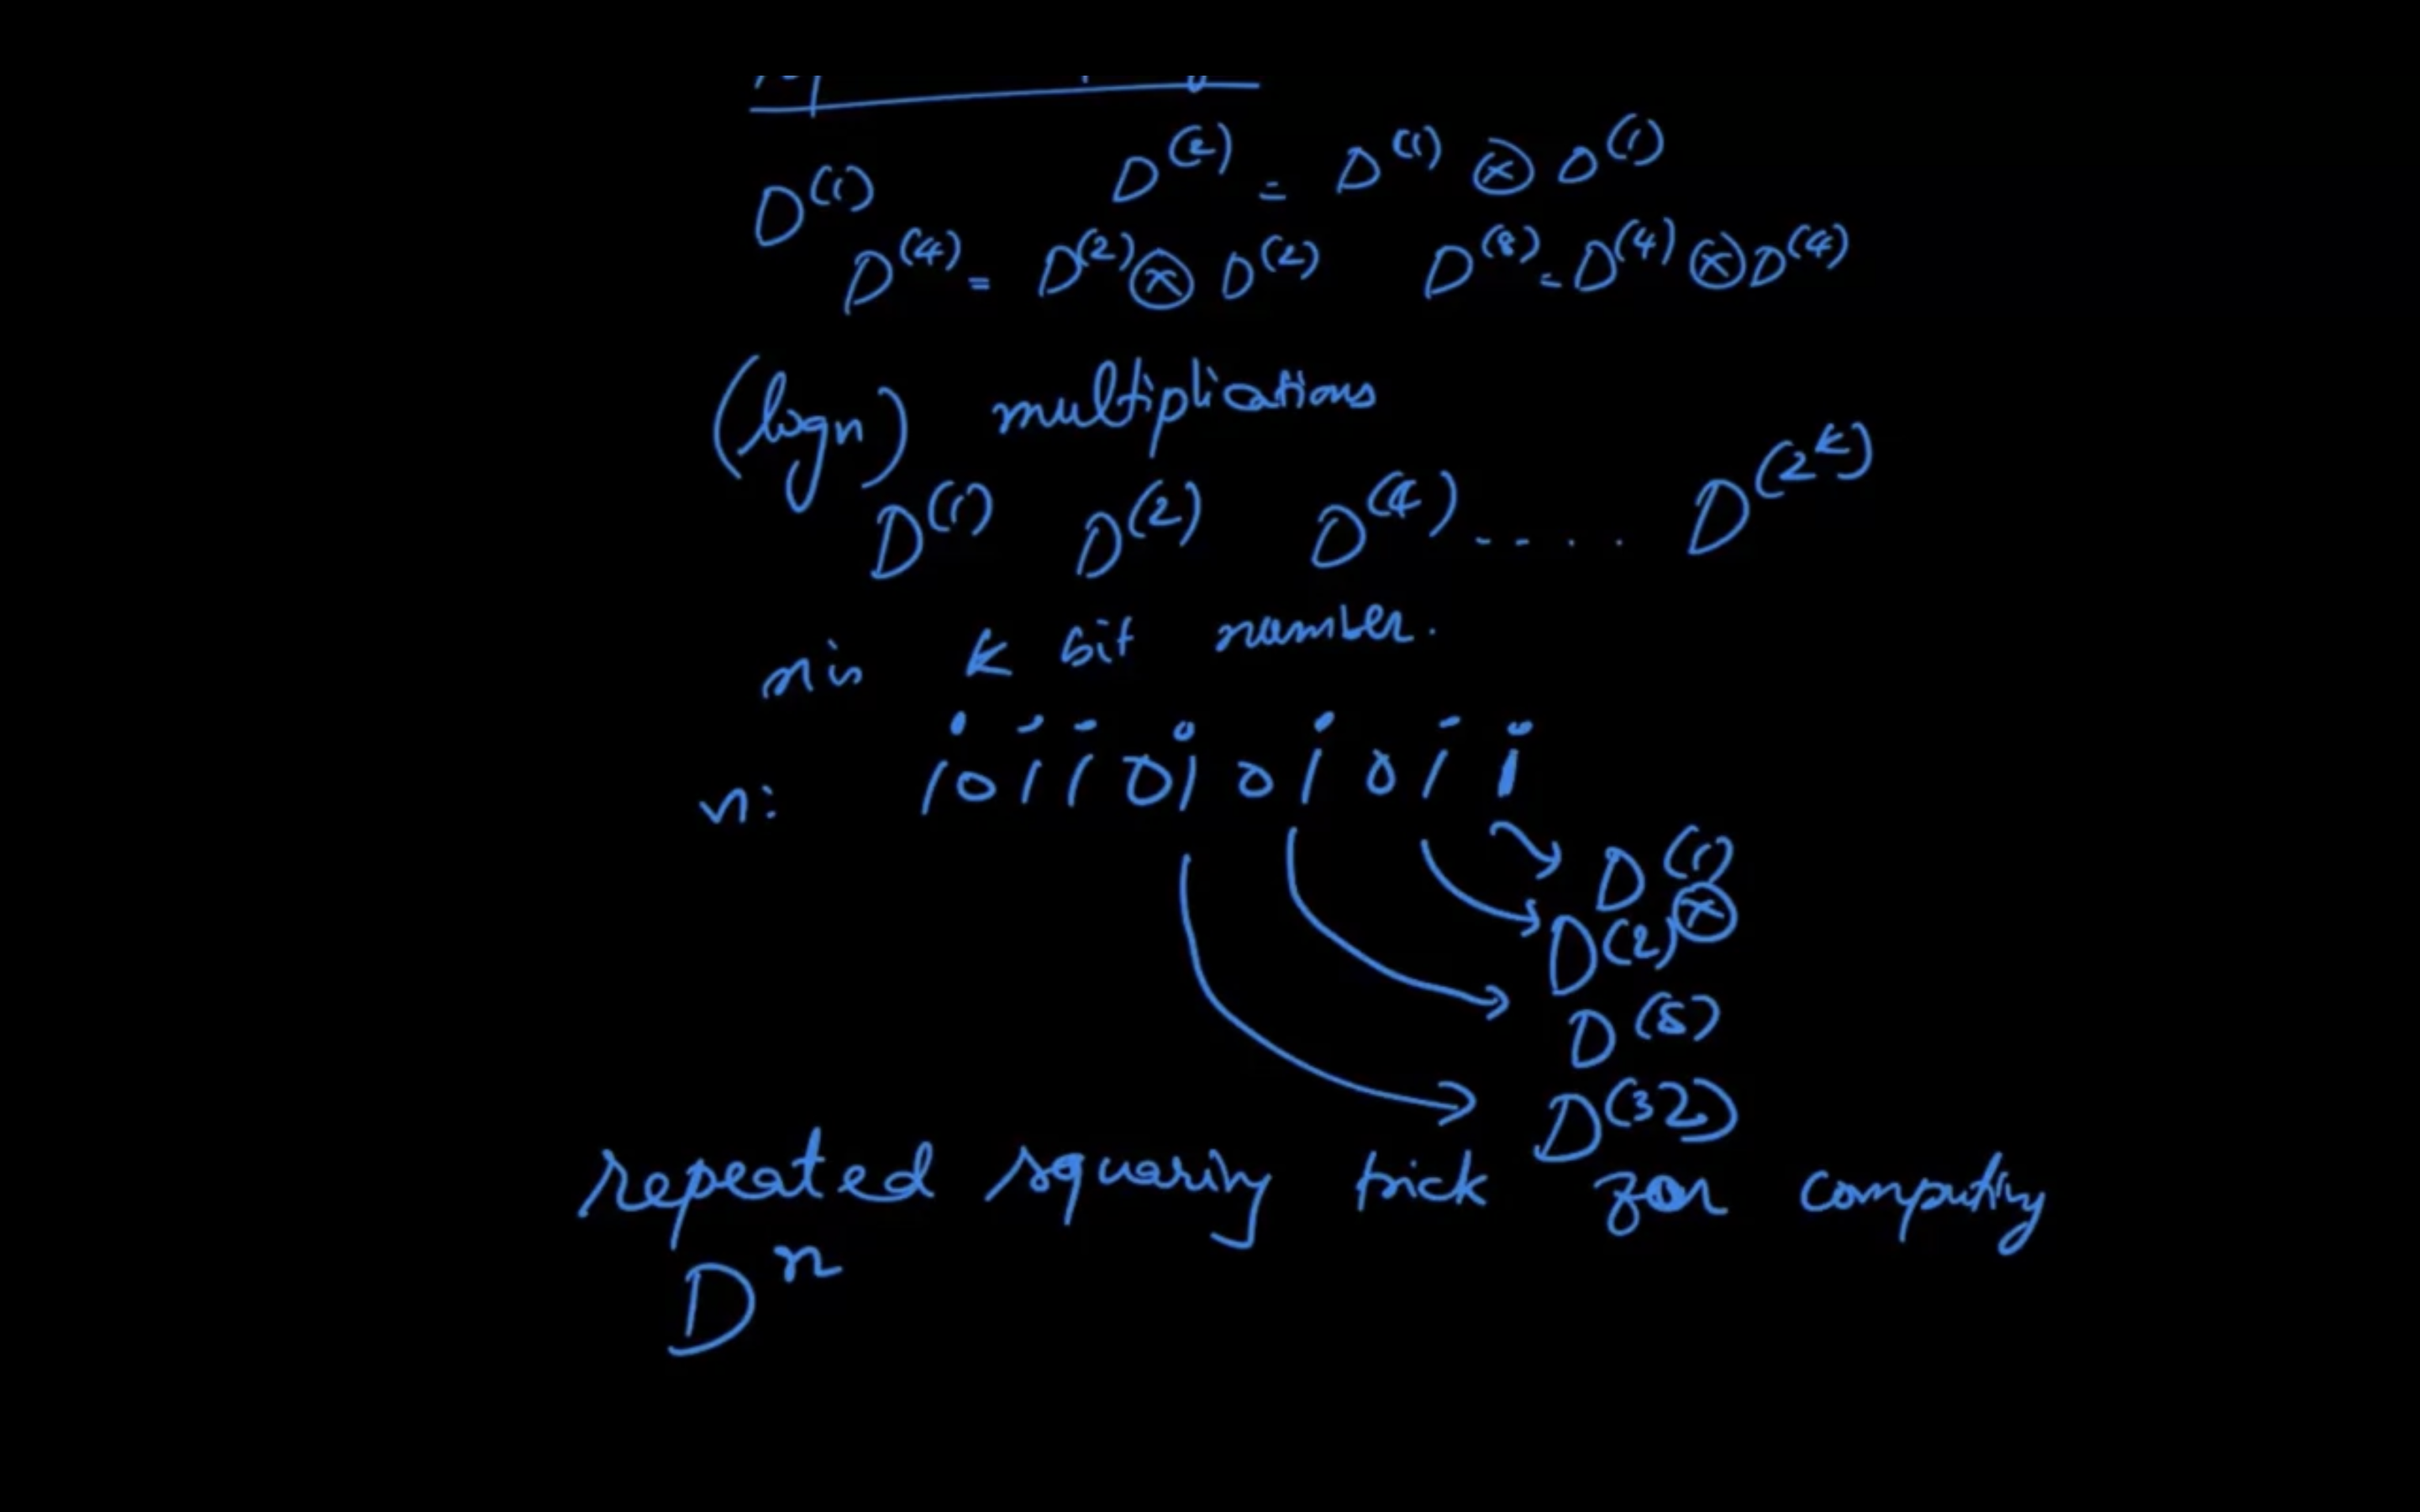 D^(1) D^(2) = D^(1) ⊗ D^(1)
D^(4) = D^(2) ⊗ D^(2) D^(8) = D^(4) ⊗ D^(4)
(log n) multiplications
D^(1) D^(2) D^(4) .... D^(2^k)
n is k bit number.
n: 1 0 1 1 0 1 0 1 0 1 1
D^(1)
⊗
D^(2)
D^(8)
D^(32)
repeated squaring trick for computing
D^n